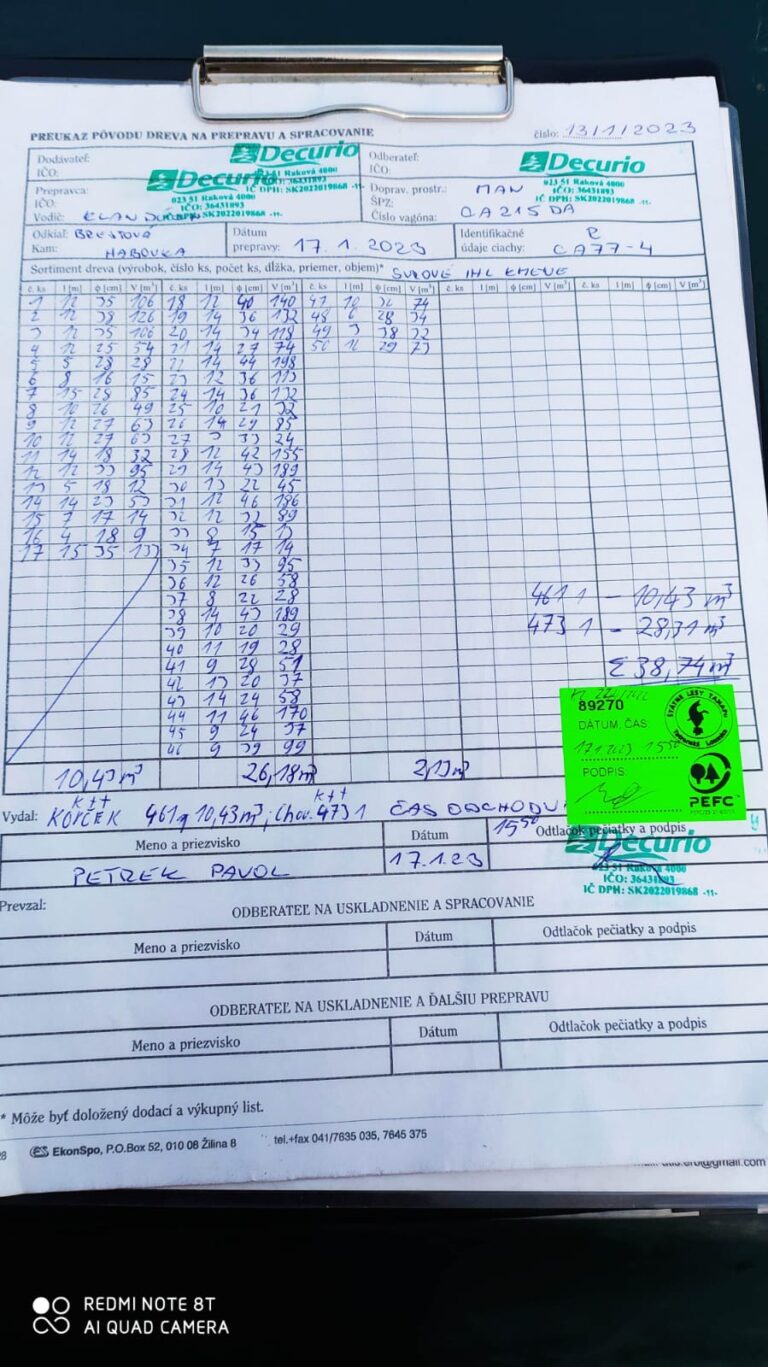 PREUKAZ PÔVODU DREVA NA PREPRAVU A SPRACOVANIE
číslo: 13/1/2023
Dodávateľ:
IČO:
Decurio
Decurio
023 51 Raková 4000
IČO: 36431893
IČ DPH: SK2022019868 -11-
Prepravca:
IČO:
Vodič:
Odberateľ:
Decurio
023 51 Raková 4000
IČO: 36431893
IČ DPH: SK2022019868 -11-
Doprav. prostr.: MAN
ŠPZ:
Číslo vagóna: CA215DA
Odkiaľ: BRESTOVÁ
Kam: HABOVKA
Dátum
prepravy: 17.1.2023
Identifikačné R
údaje ciachy: CA77-4
Sortiment dreva (výrobok, číslo ks, počet ks, dĺžka, priemer, objem)* SUROVÉ IHL KMENE
č. ks l [m] ϕ [cm] V [m³] č. ks l [m] ϕ [cm] V [m³] č. ks l [m] ϕ [cm] V [m³] č. ks l [m] ϕ [cm] V [m³] č. ks l [m] ϕ [cm] V [m³]
1 12 35 106 18 12 40 140 47 10 32 74
2 12 38 126 19 14 36 132 48 6 28 34
3 12 35 106 20 14 34 118 49 3 38 32
4 12 25 54 21 14 27 74 50 12 29 73
5 5 28 28 22 14 44 198
6 8 16 15 23 12 36 113
7 15 28 85 24 14 36 132
8 10 26 49 25 10 21 32
9 12 27 63 26 14 29 85
10 12 27 63 27 3 33 24
11 14 18 32 28 12 42 155
12 12 33 95 29 14 43 189
13 5 18 12 30 13 22 45
14 14 23 53 31 12 46 186
15 7 17 14 32 12 32 89
16 4 18 9 33 8 15 13
17 15 35 133 34 7 17 14
35 12 33 95
36 12 26 58
37 8 22 28
38 14 43 189
39 10 20 29
40 11 19 28
41 9 28 51
42 13 20 37
43 14 24 58
44 11 46 170
45 9 24 37
46 9 39 99
461 1 - 10,43 m³
473 1 - 28,31 m³
Σ 38,74 m³
10,43 m³ 26,18 m³ 2,13 m³
89270
DÁTUM, ČAS
17.1.2023 15 50
PODPIS:
ŠTÁTNE LESY TANAPU
PEFC
Vydal: KORČEK 461 10,43m³; 473 1 ČAS ODCHODU 15 50
Meno a priezvisko
Dátum
Odtlačok pečiatky a podpis
PETREK PAVOL
17.1.23
Decurio
023 51 Raková 4000
IČO: 36431893
IČ DPH: SK2022019868 -11-
Prevzal:
ODBERATEĽ NA USKLADNENIE A SPRACOVANIE
Meno a priezvisko
Dátum
Odtlačok pečiatky a podpis
ODBERATEĽ NA USKLADNENIE A ĎALŠIU PREPRAVU
Meno a priezvisko
Dátum
Odtlačok pečiatky a podpis
* Môže byť doložený dodací a výkupný list.
EkonSpo, P.O.Box 52, 010 08 Žilina 8 tel.+fax 041/7635 035, 7645 375
@gmail.com
REDMI NOTE 8T
AI QUAD CAMERA